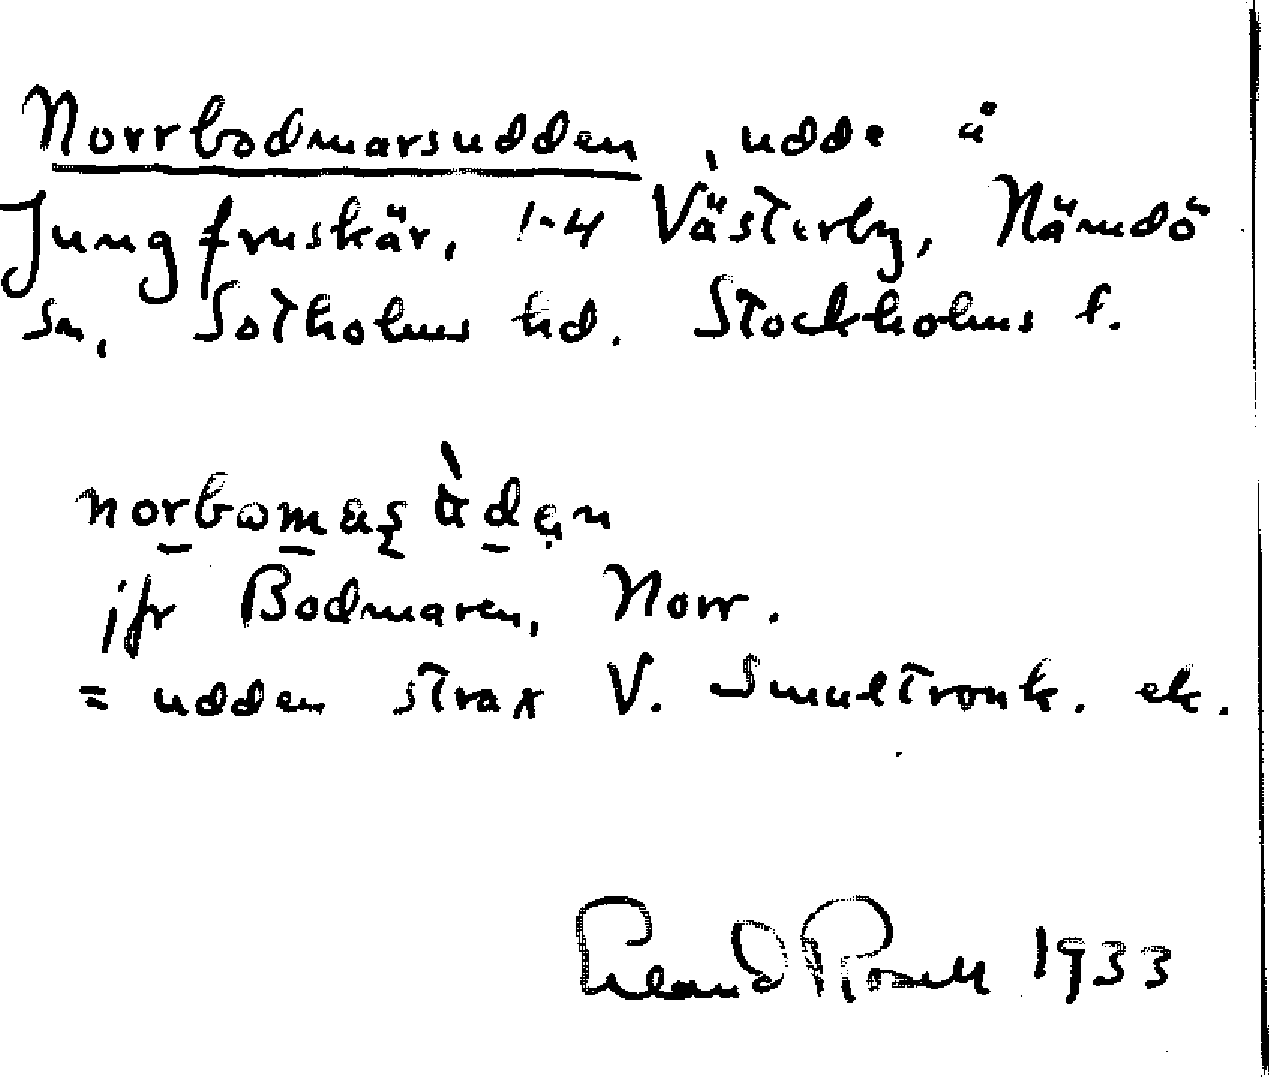 Norrbodmarsudden, udde å
Jungfruskär, 1-4 Västerby, Nämdö
sn, Sotholms hd. Stockholms l.
jfr Bodmaren, Norr.
= udden strax V. Smultronk. etc.
Erland Rosell 1933